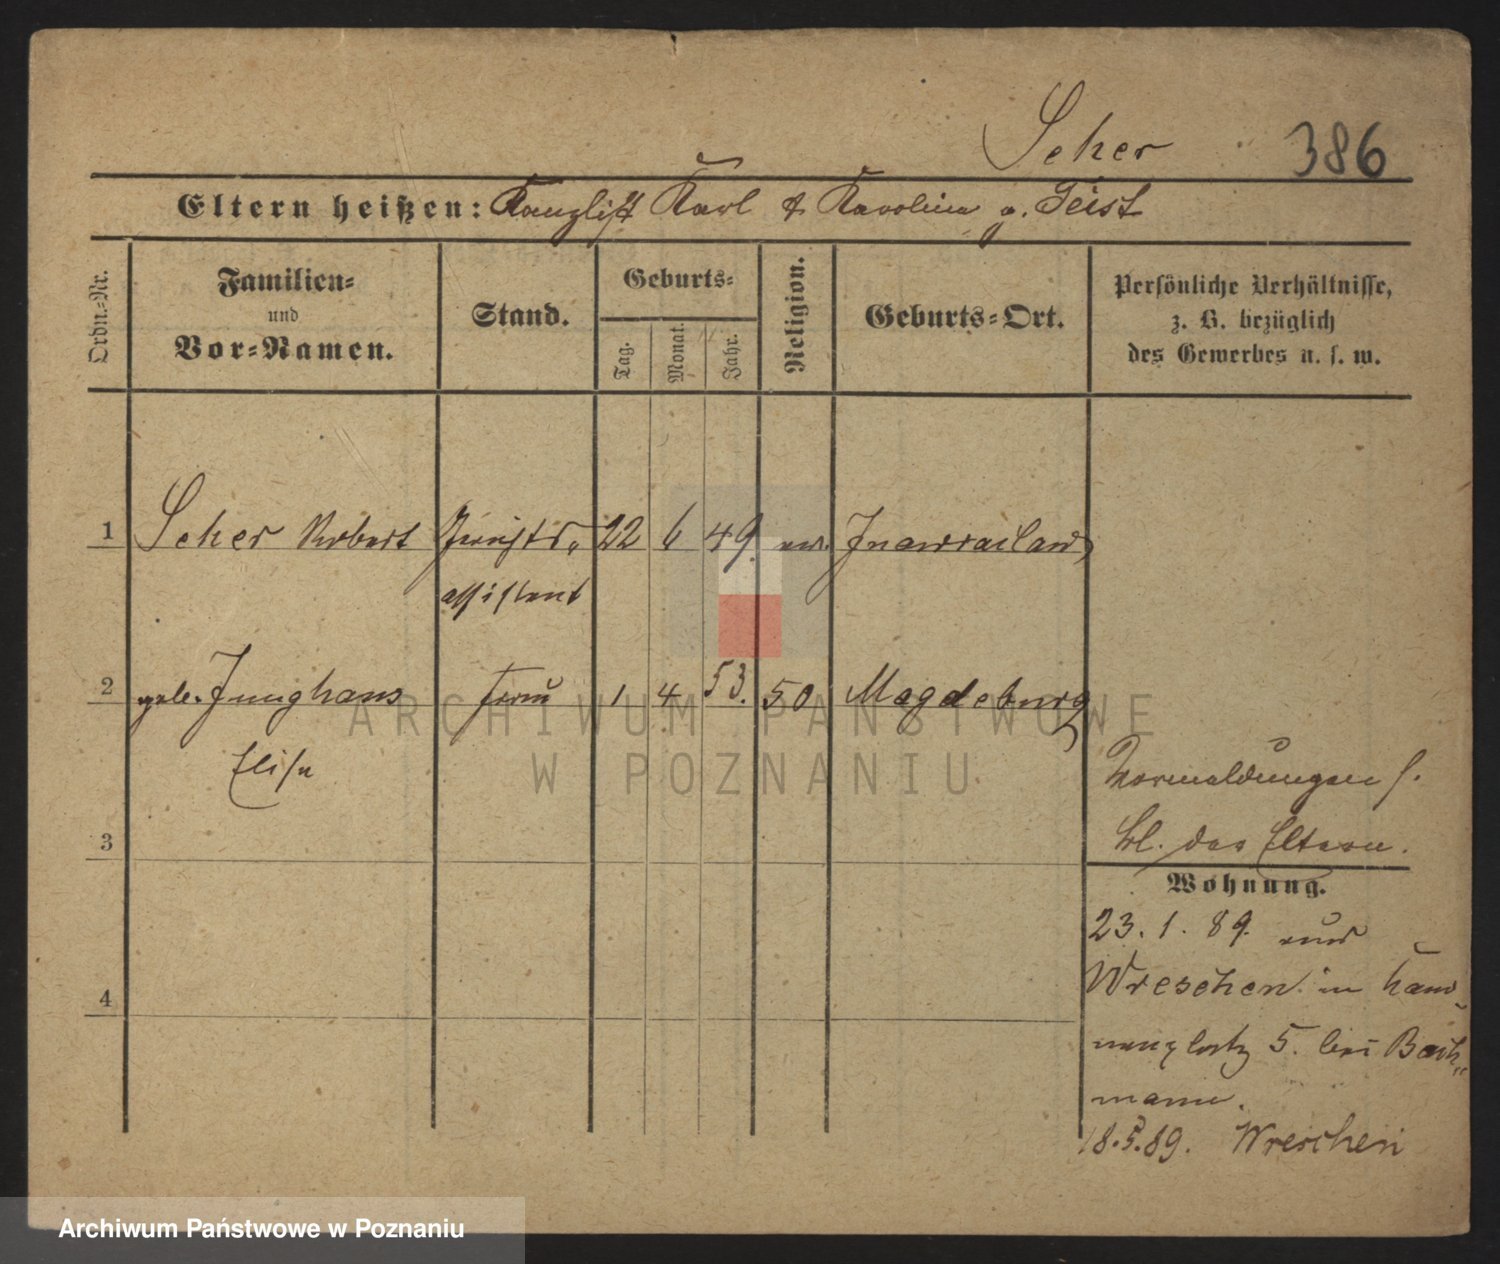 Seher 386
Eltern heißen: Kanzlist Karl & Karolina g. Geist
Ordn.-Nr.
Familien-
und
Vor-Namen.
Stand.
Geburts-
Tag. Monat. Jahr.
Religion.
Geburts-Ort.
Persönliche Verhältnisse,
z. B. bezüglich
des Gewerbes u. s. w.
1 Seher Robert 22 6 49. ev. Inowrazlaw
assistent
2 geb. Junghans Frau 1 4 53. Magdeburg
Elise
Vormeldungen s.
bl. der Eltern.
3
Wohnung.
23. 1. 89. aus
Wreschen in
4
5. bei Bach-
mann.
18.5.89. Wreschen
ARCHIWUM PAŃSTWOWE
W POZNANIU
Archiwum Państwowe w Poznaniu